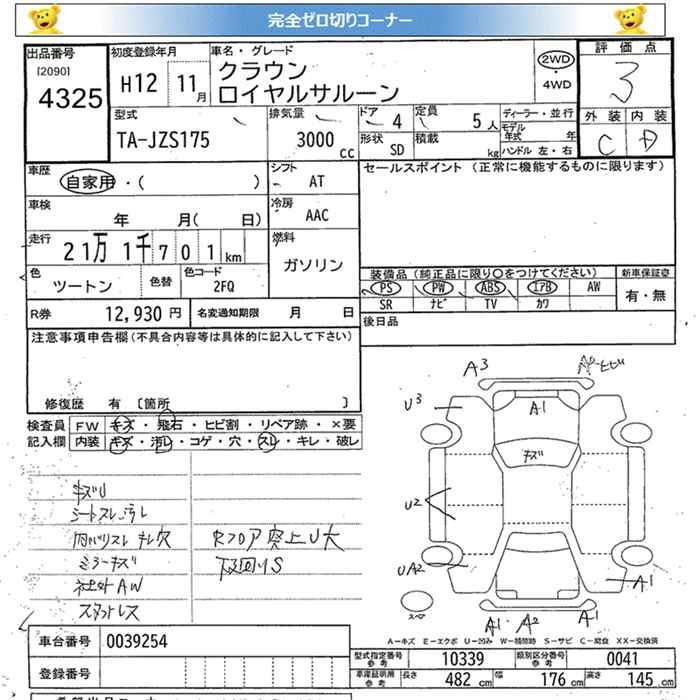 完全ゼロ切りコーナー
出品番号
[2090]
4325
初度登録年月
H12 11月
車名・グレード
クラウン
ロイヤルサルーン
2WD
・
4WD
評価点
3
外装 内装
C D
型式
TA-JZS175
排気量
3000 cc
ドア 4
定員 5人
形状 SD
積載 kg
ディーラー・並行
モデル年式 年
ハンドル 左・右
車歴
自家用・( )
シフト
AT
セールスポイント (正常に機能するものに限ります)
車検
年 月( 日)
冷房
AAC
走行
21万1千701km
燃料
ガソリン
色
ツートン
色替
色コード
2FQ
装備品 (純正品に限り○をつけてください)
PS PW ABS エアB AW
SR ナビ TV カワ
新車保証書
有・無
R券 12,930円
名変通知期限 月 日
後日品
注意事項申告欄(不具合内容等は具体的に記入して下さい)
修復歴 有 [箇所 ]
検査員
記入欄
FW キズ・飛石・ヒビ割・リペア跡・×要
内装 キズ・汚レ・コゲ・穴・スレ・キレ・破レ
キズU
シートスレ汚レ
内バリスレ キレ穴
ミラーキズ
社外AW
スタットレス
Rフロア突上U大
下回りS
A3
U3
A1
キズ
U2
UA2
A1
スペア
A1 A2 A1
A-キズ E-エクボ U-凹み W-補修跡 S-サビ C-腐食 XX-交換済
車台番号 0039254
登録番号
型式指定番号
参考
10339
類別区分番号
参考
0041
車庫証明用
参考
長さ 482cm
幅 176cm
高さ 145cm